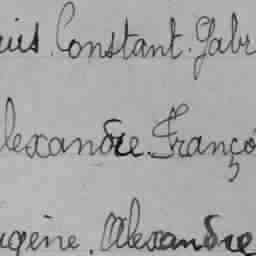 uis. Constant. Gabr
lexandre. Franço
ugène. Alexandre